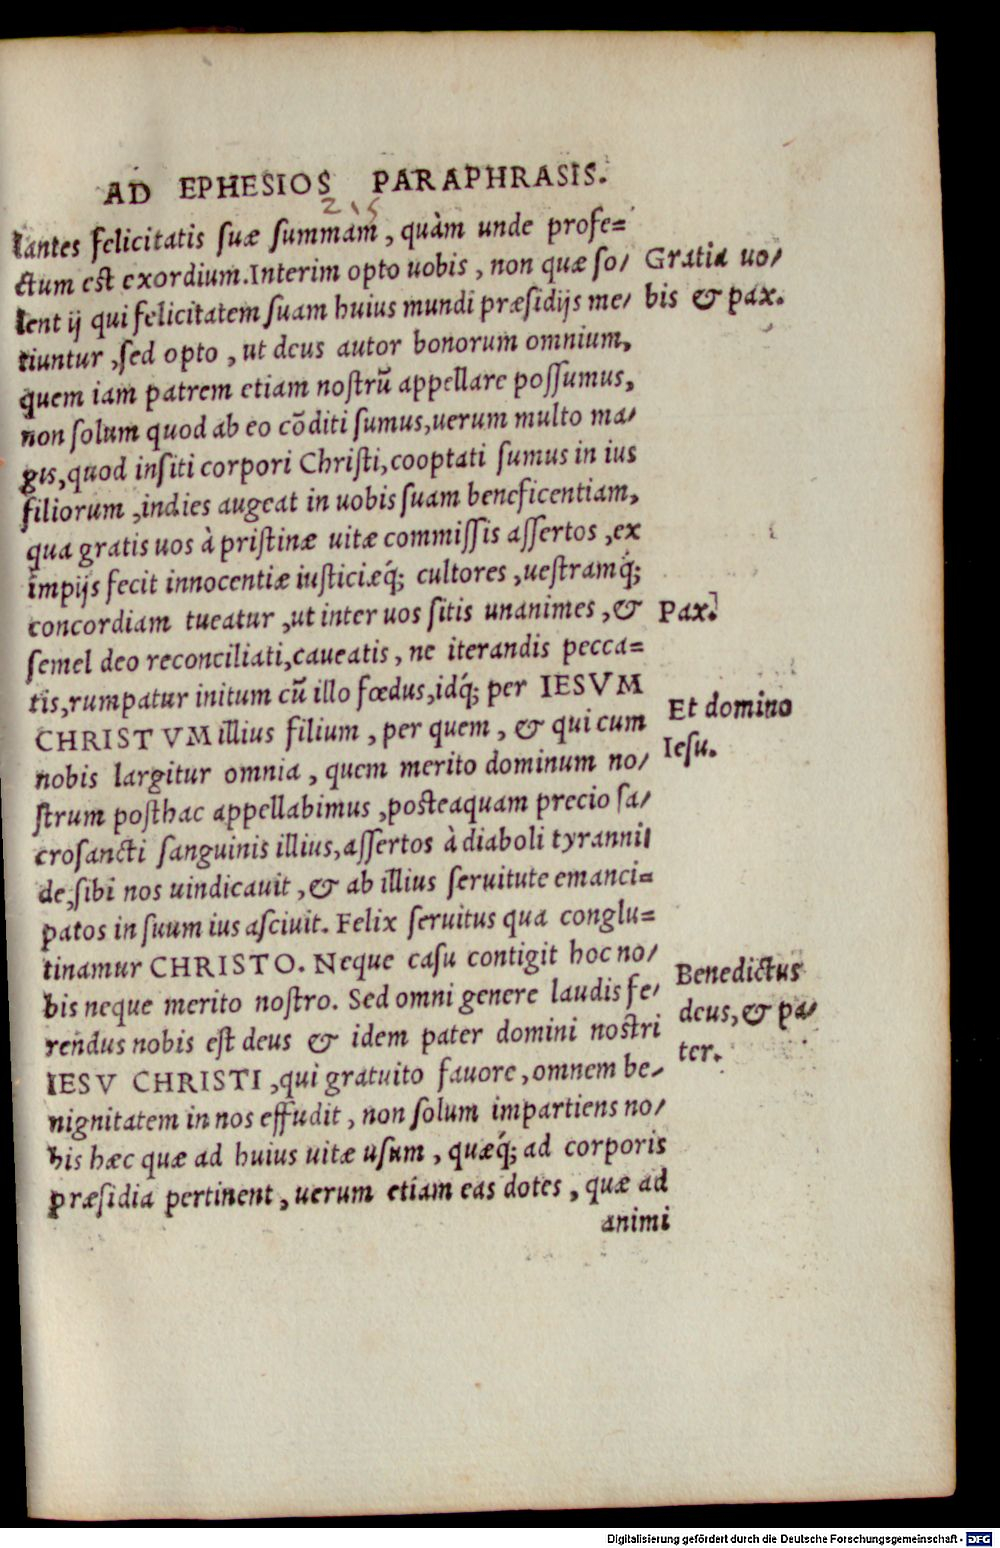 AD EPHESIOS PARAPHRASIS.
215
tantes felicitatis suæ summam, quàm unde profe=
ctum est exordium. Interim opto uobis, non quæ so/
lent ij qui felicitatem suam huius mundi præsidijs me/
tiuntur, sed opto, ut deus autor bonorum omnium,
quem iam patrem etiam nostrũ appellare possumus,
non solum quod ab eo cõditi sumus, uerum multo ma/
gis, quod insiti corpori Christi, cooptati sumus in ius
filiorum, indies augeat in uobis suam beneficentiam,
qua gratis uos à pristinæ uitæ commissis assertos, ex
impijs fecit innocentiæ iusticiæq́; cultores, uestramq́;
concordiam tueatur, ut inter uos sitis unanimes, &
semel deo reconciliati, caueatis, ne iterandis pecca=
tis, rumpatur initum cũ illo fœdus, idq́; per IESVM
CHRISTVM illius filium, per quem, & qui cum
nobis largitur omnia, quem merito dominum no/
strum posthac appellabimus, posteaquam precio sa/
crosancti sanguinis illius, assertos à diaboli tyranni
de, sibi nos uindicauit, & ab illius seruitute emanci=
patos in suum ius asciuit. Felix seruitus qua conglu=
tinamur CHRISTO. Neque casu contigit hoc no/
bis neque merito nostro. Sed omni genere laudis fe/
rendus nobis est deus & idem pater domini nostri
IESV CHRISTI, qui gratuito fauore, omnem be/
nignitatem in nos effudit, non solum impartiens no/
bis hæc quæ ad huius uitæ usum, quæq́; ad corporis
præsidia pertinent, uerum etiam eas dotes, quæ ad
animi
Gratia uo/
bis & pax.
Pax.
Et domino
Iesu.
Benedictus
deus, & pa/
ter.
Digitalisierung gefördert durch die Deutsche Forschungsgemeinschaft - DFG